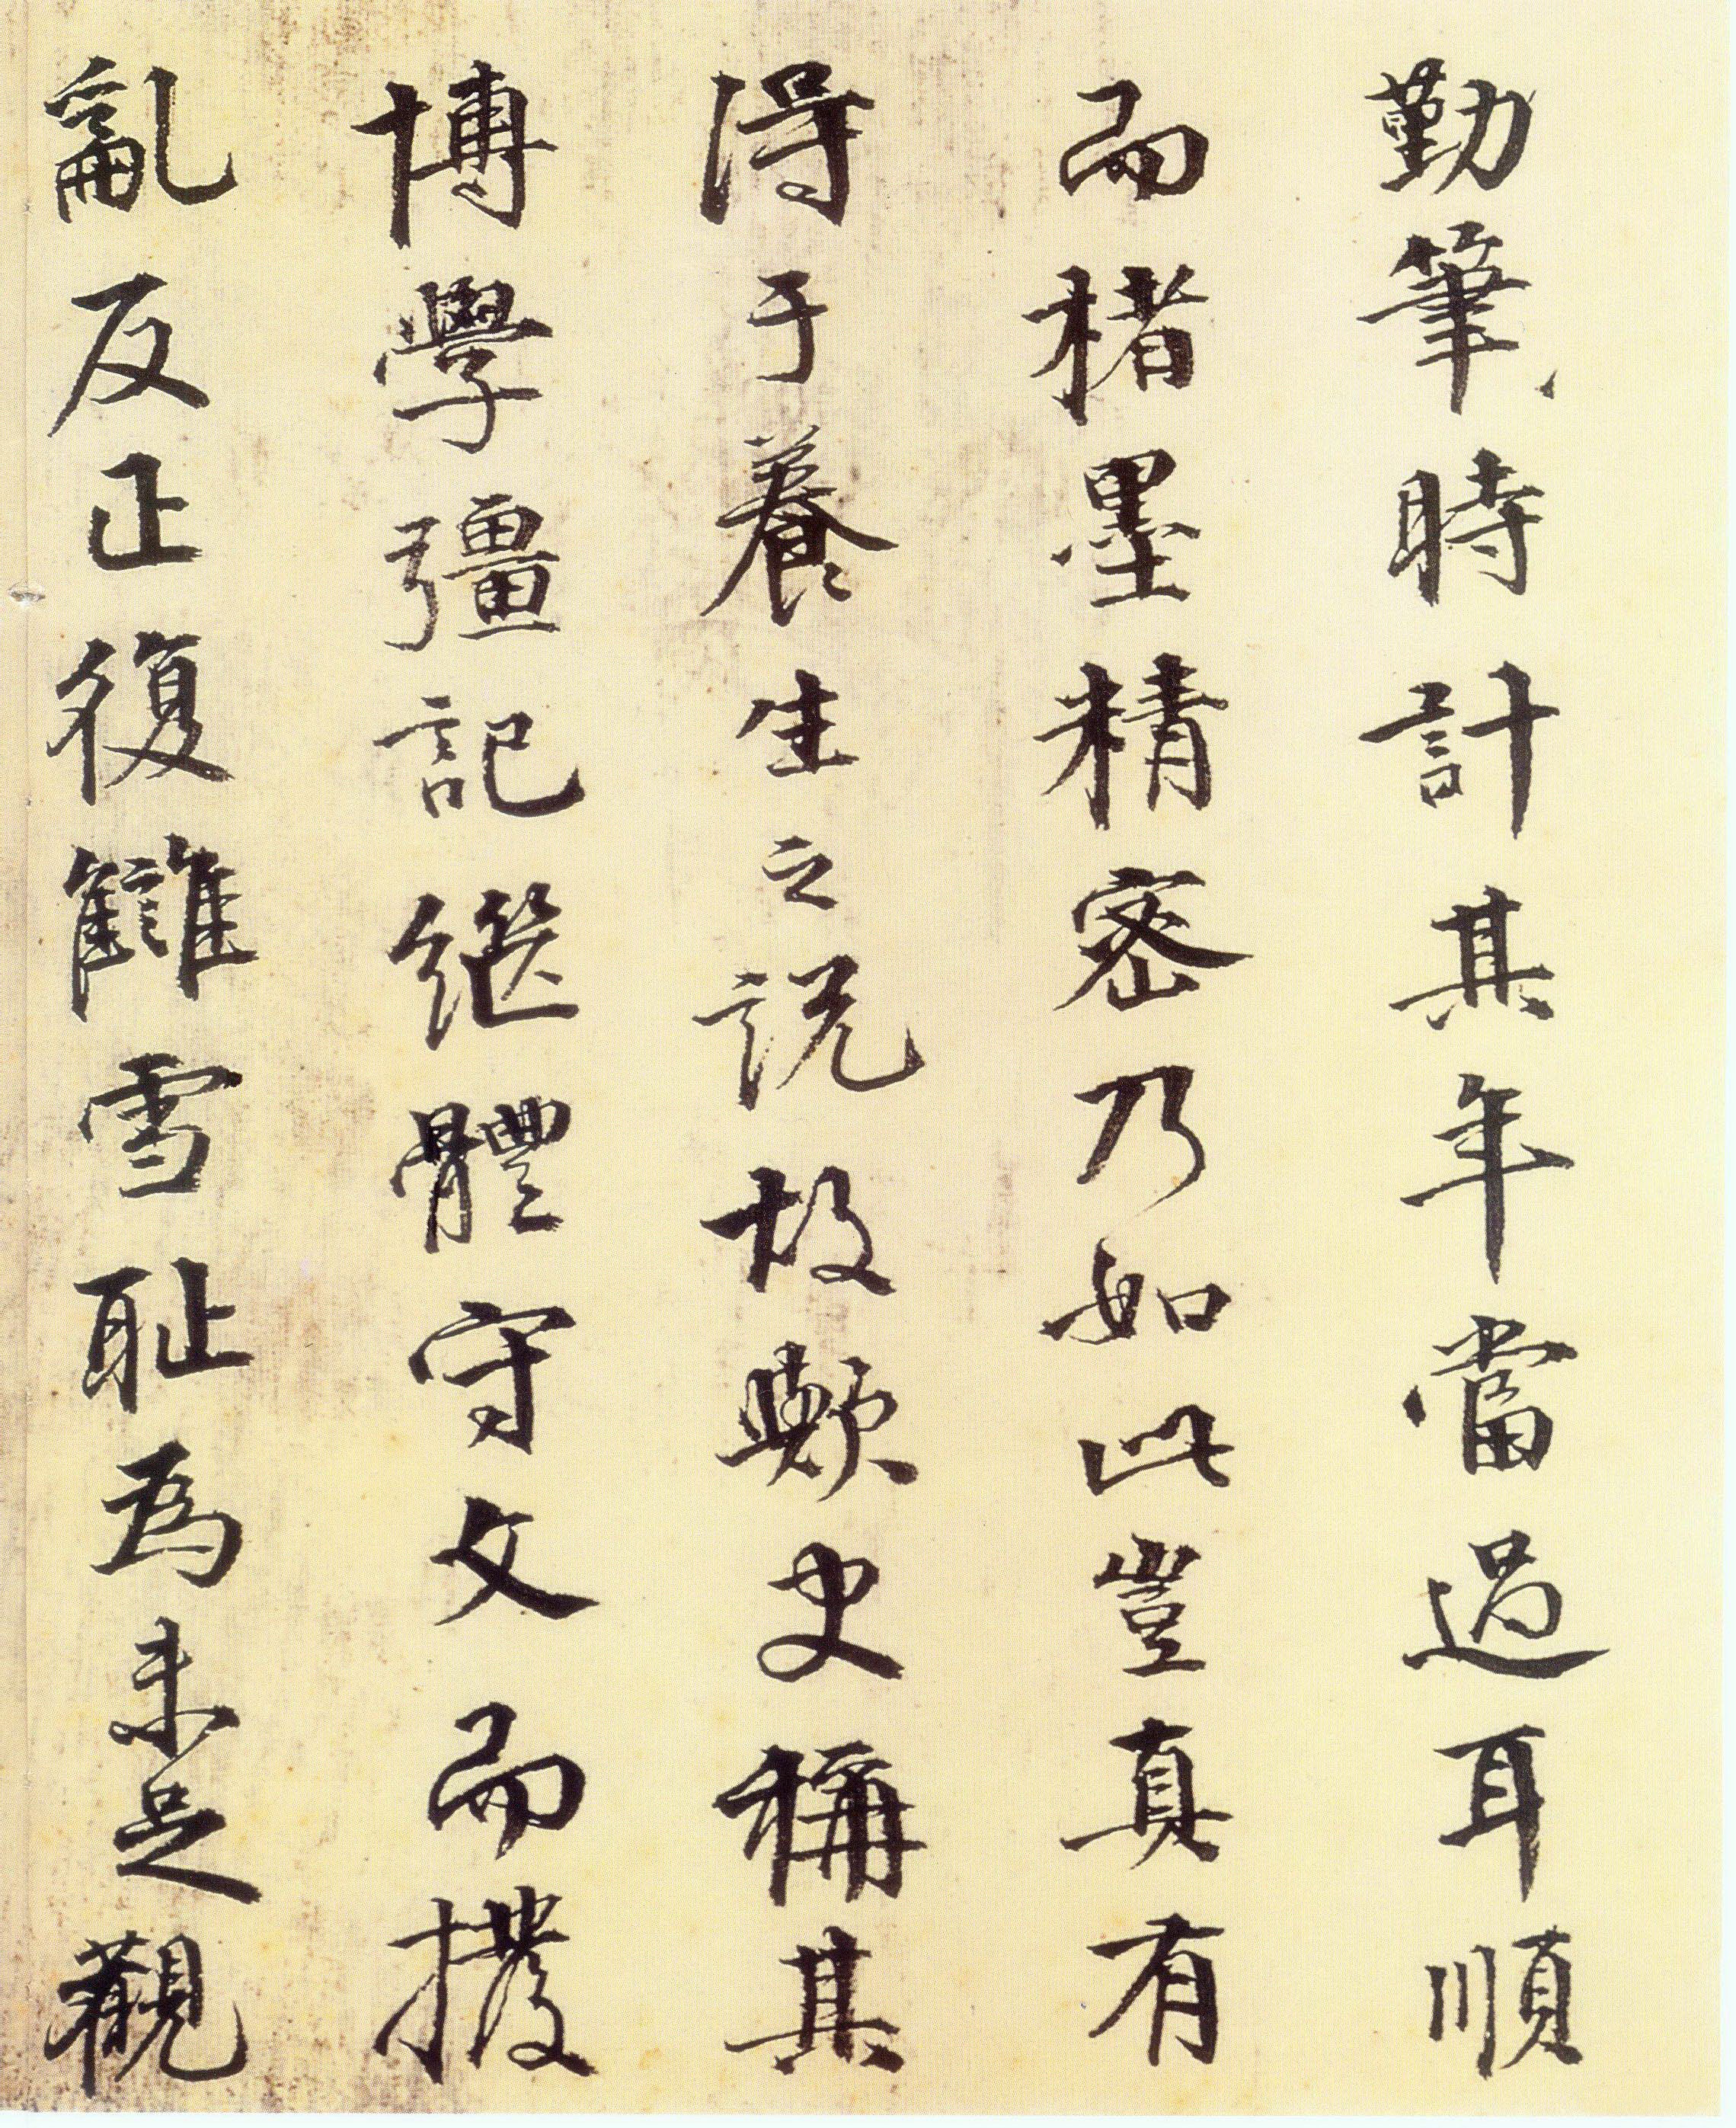 勤筆時計其年當過耳順
而楮墨精密乃如此豈真有
得于養生之說故歟史稱其
博學彊記繼體守文而撥
亂反正復讎雪耻為未足觀